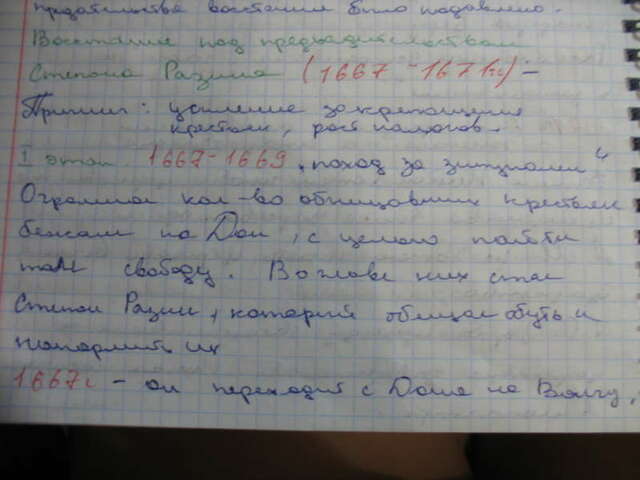 предательства восстание было подавлено.
Восстание под предводительством
Степана Разина (1667 - 1671гг) -
Причины: усиление закрепощения
крестьян, рост налогов.
I этап 1667-1669 "поход за зипунами"
Огромное кол-во обнищавших крестьян
бежали на Дон, с целью найти
там свободу. Во главе них стал
Степан Разин, который обещал обуть и
накормить их
1667г - он переходит с Дона на Волгу,